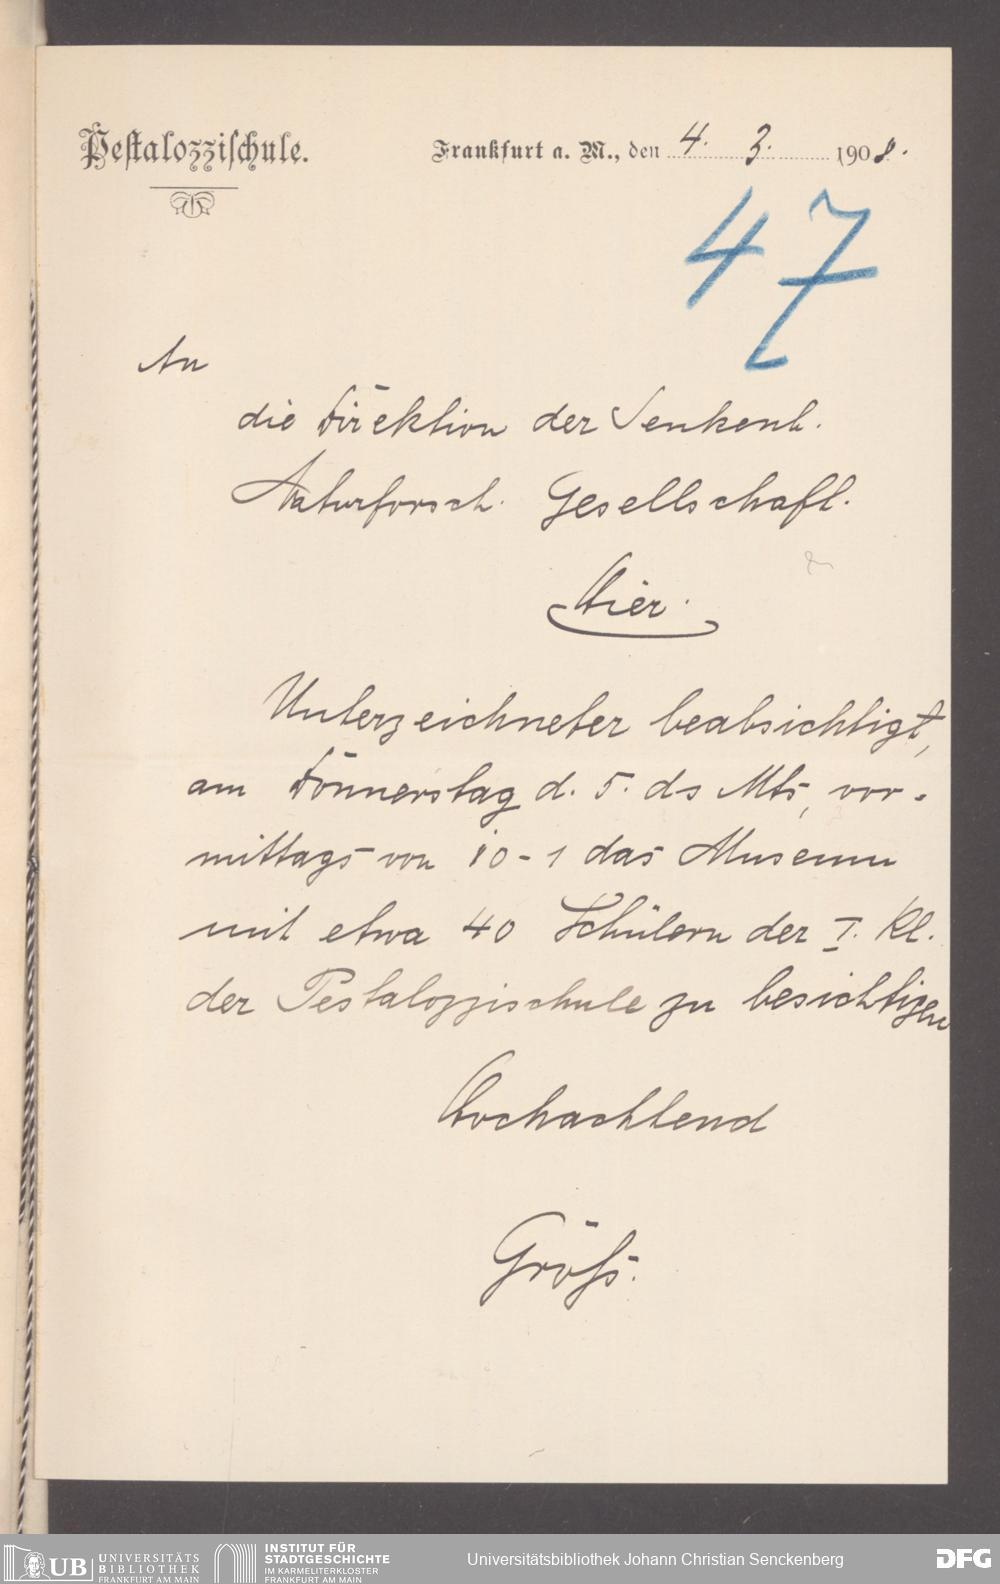 Pestalozzischule.
Frankfurt a. M., den 4. 3. 1908.
47
An
die Direktion der Senkenb.
Naturforsch. Gesellschaft.
Hier.
Unterzeichneter beabsichtigt,
am Donnerstag d. 5. ds Mts, vor-
mittags von 10-1 das Museum
mit etwa 40 Schülern der I. Kl.
der Pestalozzischule zu besichtigen
Hochachtend
UB UNIVERSITÄTS
BIBLIOTHEK
FRANKFURT AM MAIN
INSTITUT FÜR
STADTGESCHICHTE
IM KARMELITERKLOSTER
FRANKFURT AM MAIN
Universitätsbibliothek Johann Christian Senckenberg
DFG